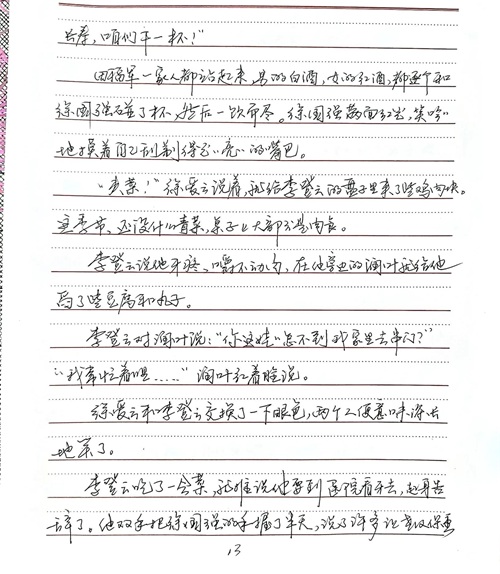 长寿，咱们干一杯！"
田福军一家人都站起来，男的白酒，女的红酒，都逐个和
徐国强碰了杯，然后一饮而尽。徐国强满面红光，笑吟吟
地摸着自己刮剃得光亮的嘴巴。
"夹菜！"徐爱云说着，就给李登云的盘子里夹了些鸡肉块。
这季节，还没什么青菜，桌子上大都是肉食。
李登云说他牙疼，嚼不动肉，在他旁边的润叶就给他
舀了些豆腐和丸子。
李登云对润叶说："你这娃娃怎不到我家里去串门？"
"我常忙着哩……"润叶红着脸说。
徐爱云和李登云交换了一下眼色，两个人便意味深长
地笑了。
李登云吃了一会菜，就推说他要到医院看牙去，起身告
辞了。他双手把徐国强的手握了半天，说了许多让老汉保重
13